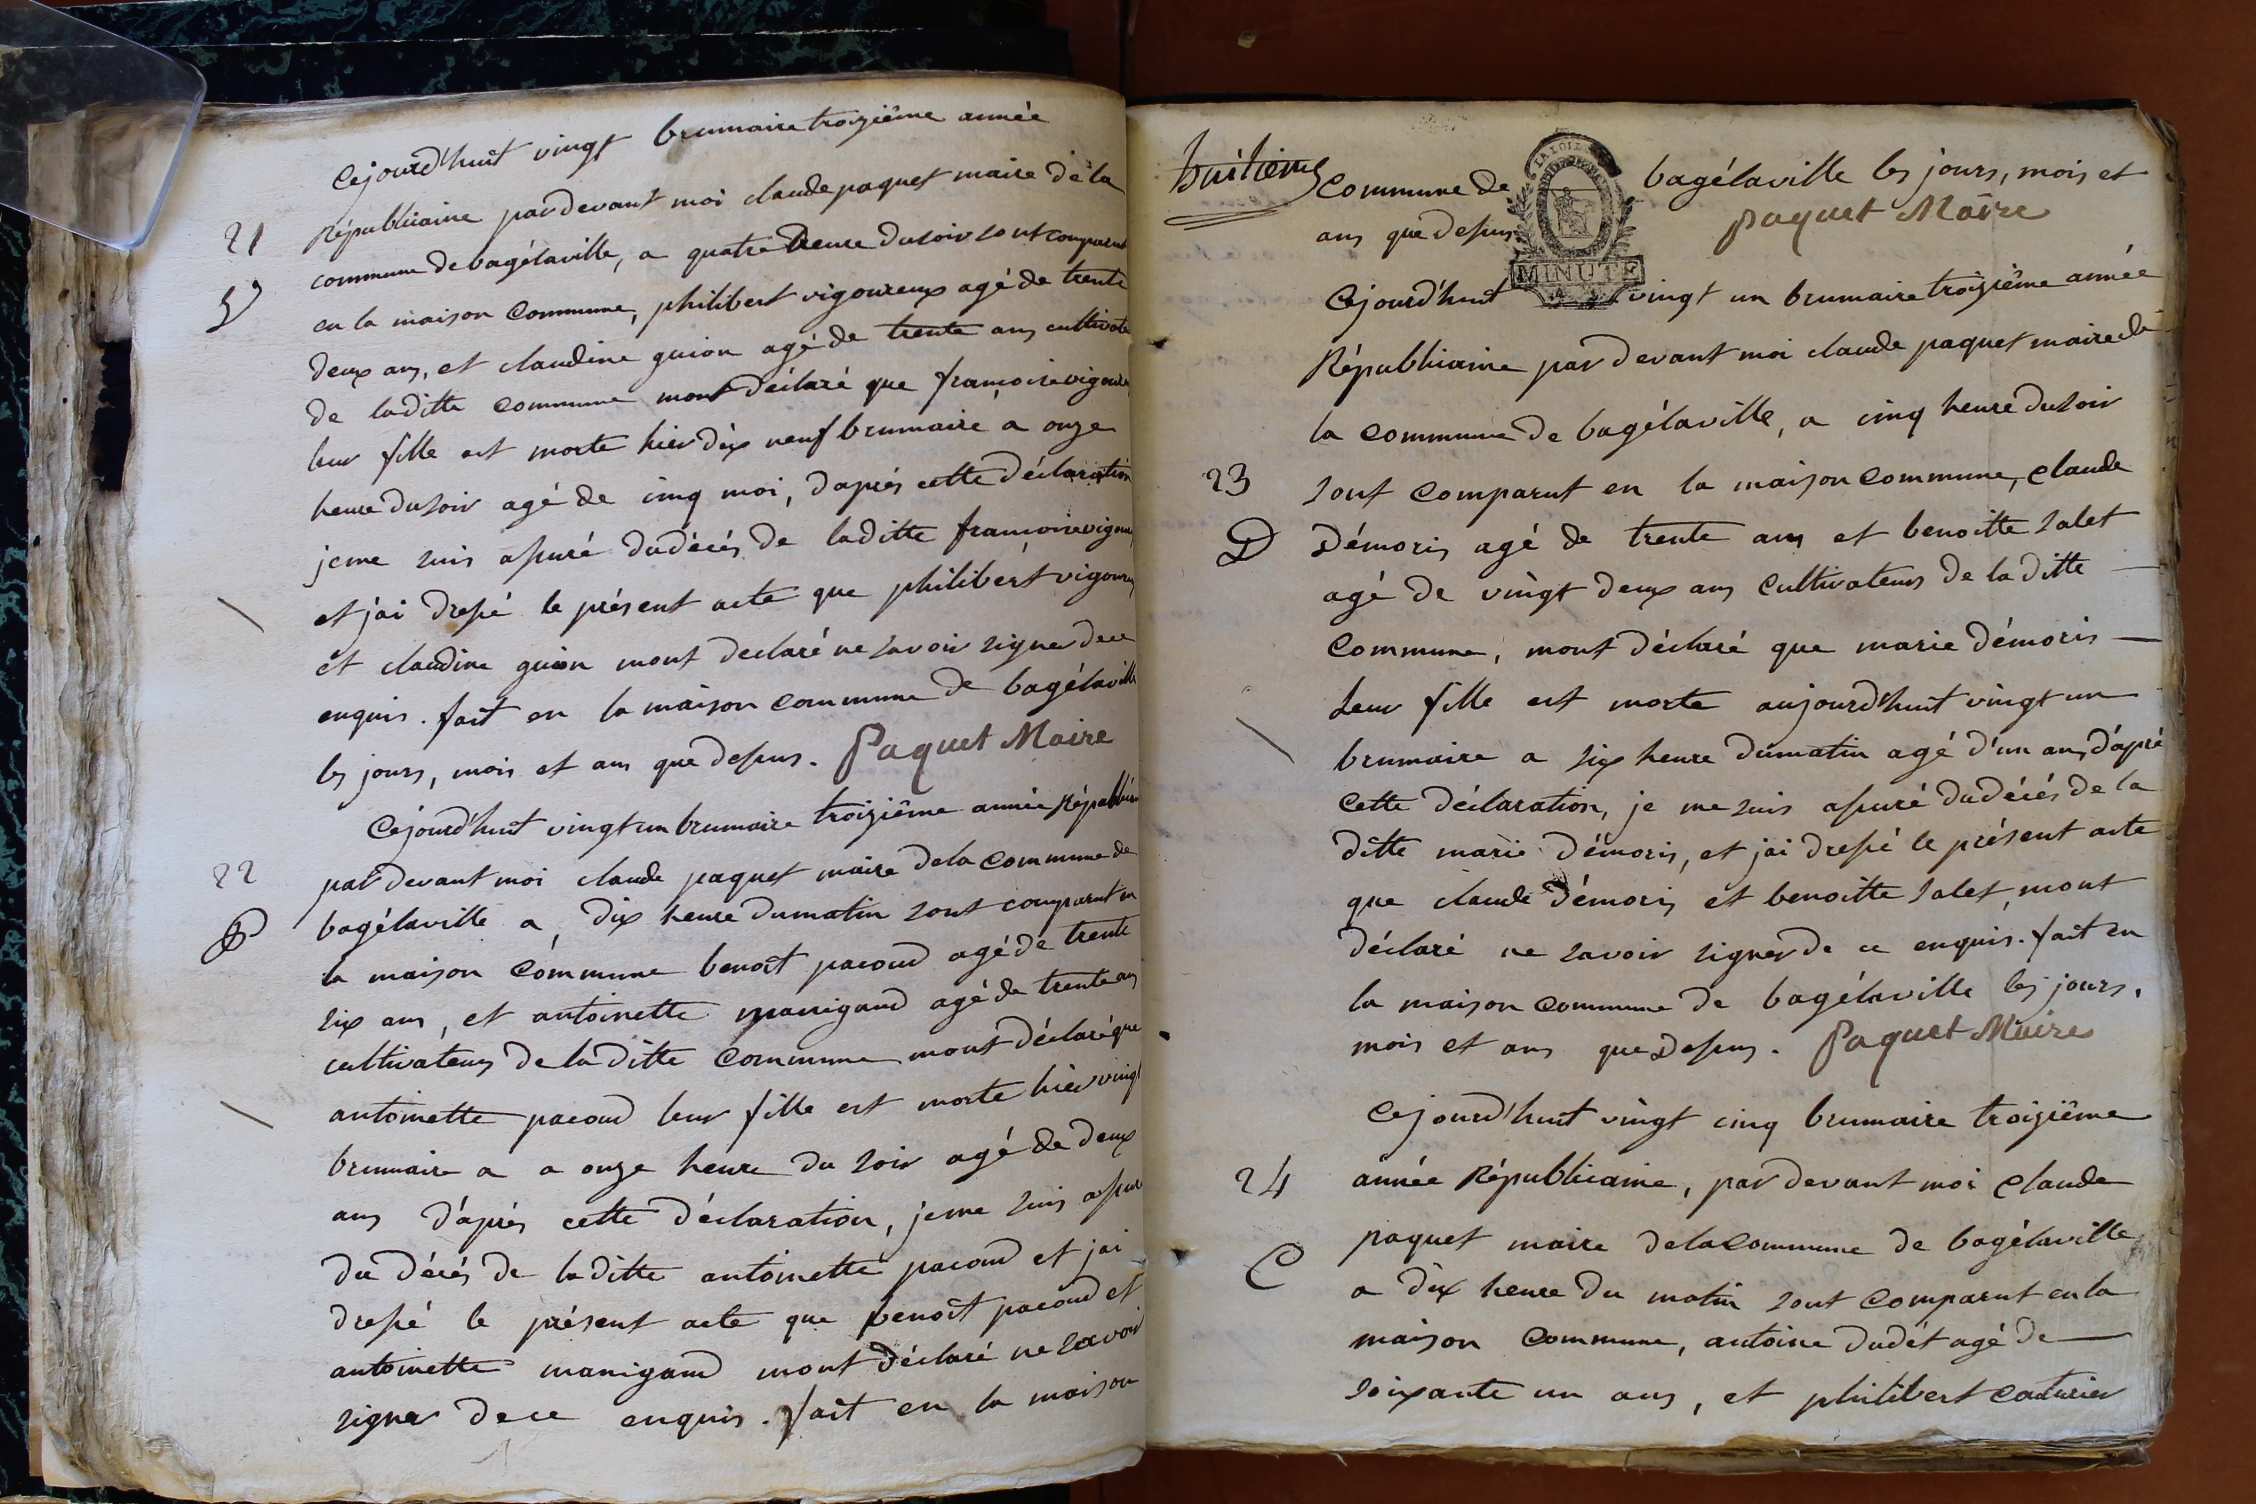 Cejourd'huit vingt brumaire troizième année
21
Républicaine pardevant moi claude paquet maire de la
commune de bagélaville, a quatre heure dusoir sont comparut
V
en la maison commune, philibert vigoureux agé de trente
deux ans, et claudine guion agé de trente ans cultivate
de laditte commune mont déclaré que francoise vigoure
leur fille est morte hier dix neuf brumaire a onze
heure dusoir agé de cinq moi, d'aprés cette déclaration
jeme suis assuré dudécés de laditte francoise vigour
et j'ai dressé le présent acte que philibert vigoureux
et claudine guion mont declaré ne savoir signer dece
enquis. fait en la maison commune de bagélaville
les jours, mois et ans que dessus. Paquet Maire
Cejourd'huit vingt un brumaire troizième année Républicai
22
par devant moi claude paquet maire dela commune de
bagélaville a dix heure dumatin sont comparut en
P
la maison commune benoît pacoud agé de trente
six ans, et antoinette manigand agé de trente ans
cultivateurs de laditte commune mont déclaré que
antoinette pacoud leur fille est morte hier vingt
brumaire a a onze heure du soir agé de deux
ans d'aprés cette déclaration, jeme suis assuré
du décés de laditte antoinette pacoud et jai
dressé le présent acte que benoît pacoud et
antoinette manigand mont déclaré ne savoir
signer dece enquis. fait en la maison
huitieme
commune de bagélaville les jours, mois et
ans que dessus Paquet Maire
LA LOI
MINUTE
Cejourd'huit vingt un brumaire troizième année
Républicaine par devant moi claude paquet maire de
la commune de bagélaville, a cinq heure dusoir
23
sont comparut en la maison commune, claude
D
Démoris agé de trente ans et benoitte salet
agé de vingt deux ans cultivateurs de la ditte
commune, mont déclaré que marie démoris
leur fille est morte aujourd'huit vingt un
brumaire a six heure dumatin agé d'un ans, d'apré
cette déclaration, je me suis assuré dudécés de la
ditte marie démoris, et jai dressé le présent acte
que claude démoris et benoitte salet, mont
déclaré ne savoir signer de ce enquis. fait en
la maison commune de bagélaville les jours,
mois et ans que dessus. Paquet Maire
Cejourd'huit vingt cinq brumaire troizième
24
année Républicaine, par devant moi claude
paquet maire dela commune de bagélaville
C
a dix heure du matin sont comparut en la
maison commune, antoine dudét agé de
soixante un ans, et philibert couturier